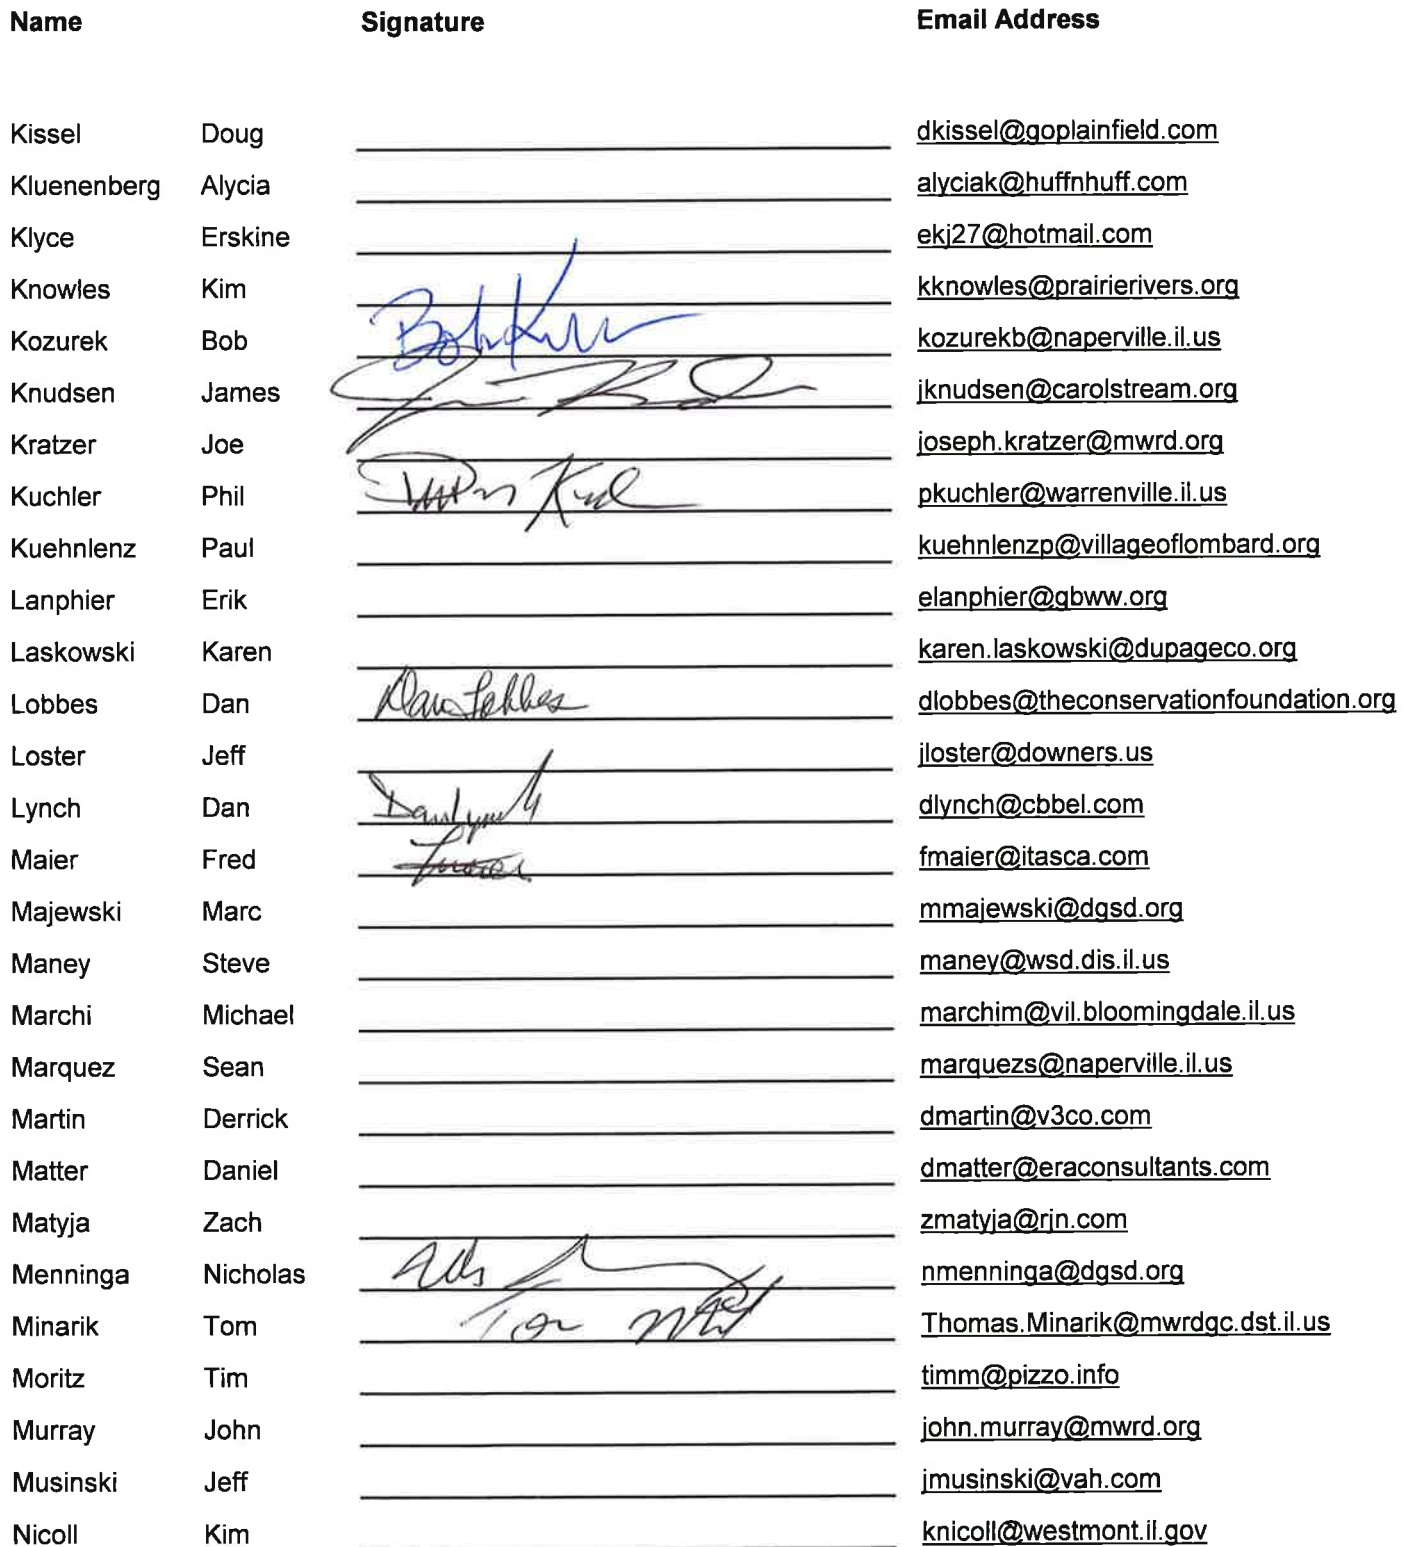 Name Signature Email Address
Kissel Doug dkissel@goplainfield.com
Kluenenberg Alycia alyciak@huffnhuff.com
Klyce Erskine ekj27@hotmail.com
Knowles Kim kknowles@prairierivers.org
Kozurek Bob Bob kozurekb@naperville.il.us
Knudsen James jknudsen@carolstream.org
Kratzer Joe joseph.kratzer@mwrd.org
Kuchler Phil pkuchler@warrenville.il.us
Kuehnlenz Paul kuehnlenzp@villageoflombard.org
Lanphier Erik elanphier@gbww.org
Laskowski Karen karen.laskowski@dupageco.org
Lobbes Dan Dan Lobbes dlobbes@theconservationfoundation.org
Loster Jeff jloster@downers.us
Lynch Dan Dan Lynch dlynch@cbbel.com
Maier Fred fmaier@itasca.com
Majewski Marc mmajewski@dgsd.org
Maney Steve maney@wsd.dis.il.us
Marchi Michael marchim@vil.bloomingdale.il.us
Marquez Sean marquezs@naperville.il.us
Martin Derrick dmartin@v3co.com
Matter Daniel dmatter@eraconsultants.com
Matyja Zach zmatyja@rjn.com
Menninga Nicholas nmenninga@dgsd.org
Minarik Tom Tom Thomas.Minarik@mwrdgc.dst.il.us
Moritz Tim timm@pizzo.info
Murray John john.murray@mwrd.org
Musinski Jeff jmusinski@vah.com
Nicoll Kim knicoll@westmont.il.gov